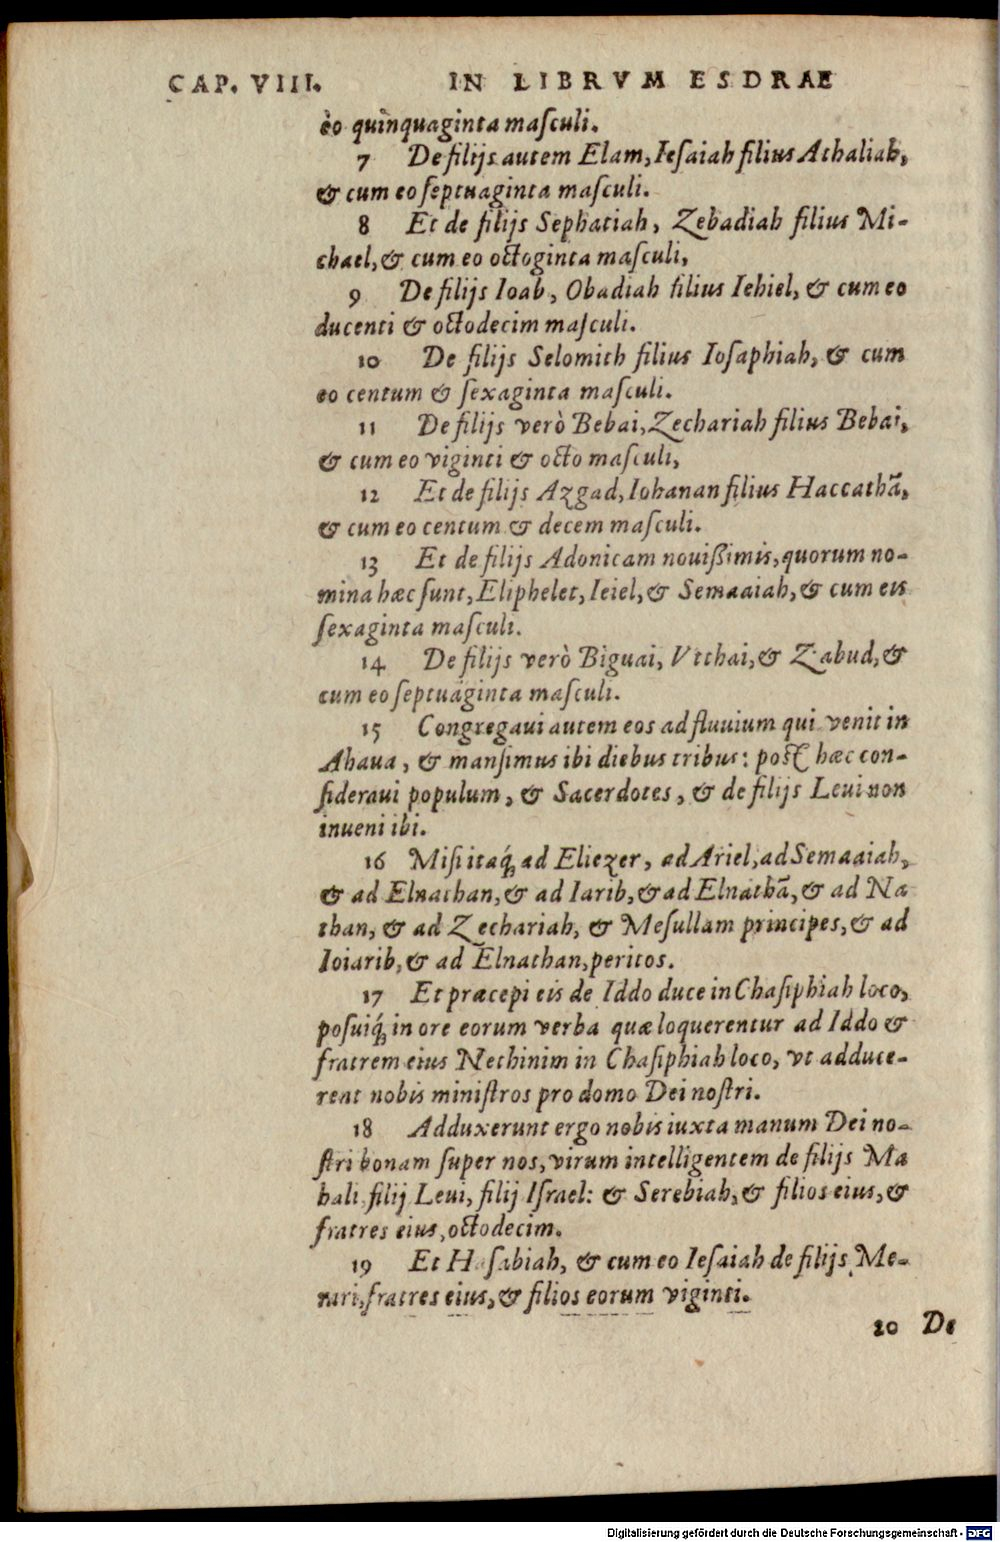 CAP. VIII. IN LIBRVM ESDRAE
eo quinquaginta maſculi.
7 De filijs autem Elam, Ieſaiah filius Athaliah,
& cum eo ſeptuaginta maſculi.
8 Et de filijs Sephatiah, Zebadiah filius Mi-
chael, & cum eo octoginta maſculi,
9 De filijs Ioab, Obadiah filius Iehiel, & cum eo
ducenti & octodecim maſculi.
10 De filijs Selomith filius Ioſaphiah, & cum
eo centum & ſexaginta maſculi.
11 De filijs verò Bebai, Zechariah filius Bebai,
& cum eo viginti & octo maſculi,
12 Et de filijs Azgad, Iohanan filius Haccathã,
& cum eo centum & decem maſculi.
13 Et de filijs Adonicam nouißimis, quorum no-
mina hæc ſunt, Eliphelet, Ieiel, & Semaaiah, & cum eis
ſexaginta maſculi.
14 De filijs verò Biguai, Vtthai, & Zabud, &
cum eo ſeptuaginta maſculi.
15 Congregaui autem eos ad fluuium qui venit in
Ahaua, & manſimus ibi diebus tribus: poſt hæc con-
ſideraui populum, & Sacerdotes, & de filijs Leui non
inueni ibi.
16 Miſi itaq́; ad Eliezer, ad Ariel, ad Semaaiah,
& ad Elnathan, & ad Iarib, & ad Elnathã, & ad Na
than, & ad Zechariah, & Meſullam principes, & ad
Ioiarib, & ad Elnathan, peritos.
17 Et præcepi eis de Iddo duce in Chaſiphiah loco,
poſuiq́; in ore eorum verba quæ loquerentur ad Iddo &
fratrem eius Nethinim in Chaſiphiah loco, vt adduce-
rent nobis miniſtros pro domo Dei noſtri.
18 Adduxerunt ergo nobis iuxta manum Dei no-
ſtri bonam ſuper nos, virum intelligentem de filijs Ma
hali filij Leui, filij Iſrael: & Serebiah, & filios eius, &
fratres eius, octodecim.
19 Et Haſabiah, & cum eo Ieſaiah de filijs Me-
rari, fratres eius, & filios eorum viginti.
20 De
Digitalisierung gefördert durch die Deutsche Forschungsgemeinschaft - DFG